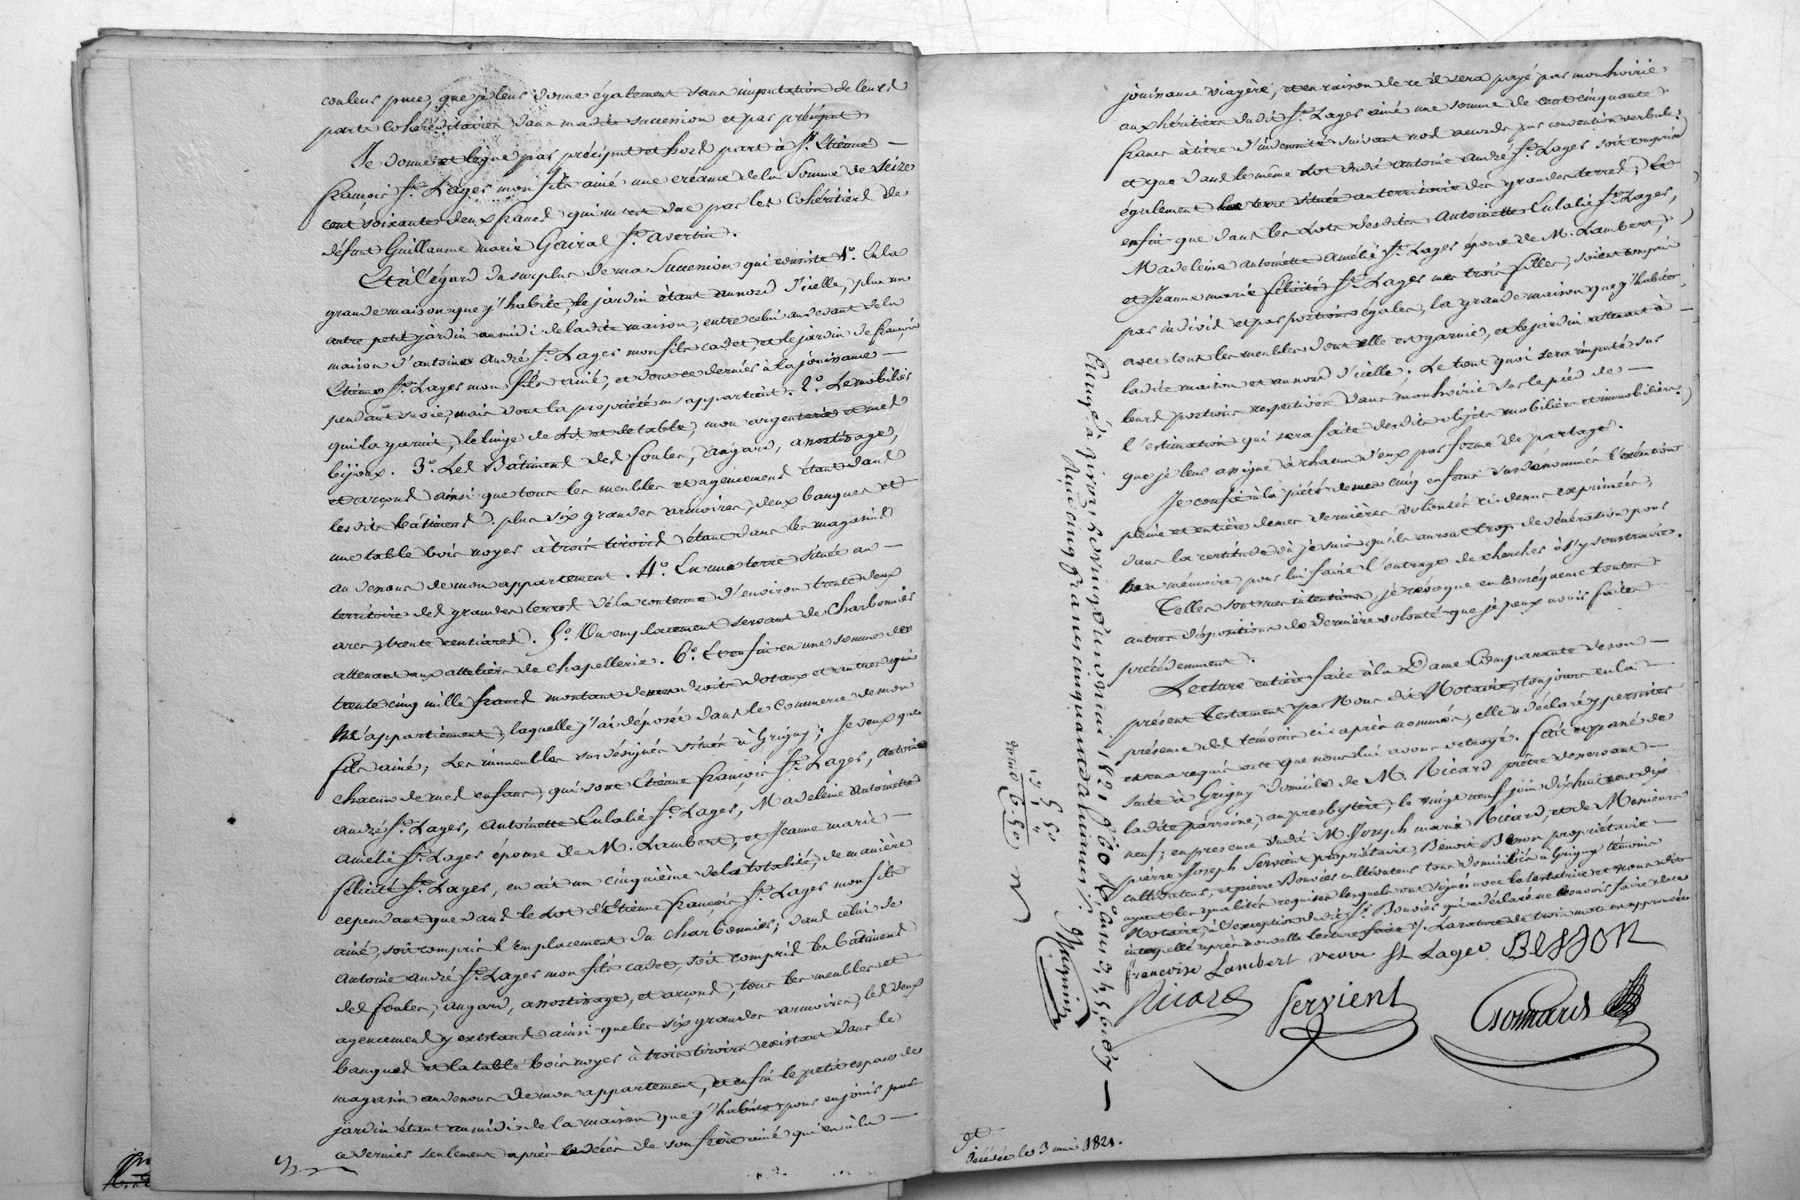 couleur puce, que je leur donne également sans imputation de leurs
parts cohéréditaires dans ma dite succession et par préciput
Je donne et lègue par préciput et hors part à Sr. Etienne
françois St. Lager mon fils ainé une créance de la somme de Seize
cent soixante deux francs qui m'est due par les Cohéritiers de
défunt Guillaume marie Gairal St. avertin.
Et à l'égard du surplus de ma Succession qui consiste 1o. En la
grande maison que j'habite, le jardin étant au nord d'icelle, plus un
autre petit jardin au midi de la dite maison, entre celui au devant de la
maison d'antoine andré St. Lager mon fils cadet, et le jardin de françois
Etienne St. Lager mon fils ainé, et dont ce dernier à la jouissance
pendant sa vie, mais dont la propriété m'appartient. 2o. Le mobilier
qui la garnit, le linge de lit et de table, mon argenterie et mes
bijoux. 3o. Les Bâtimens des foules, angard,
et arçons ainsi que tous les meubles et agencemens étant dans
les dits bâtimens, plus six grandes armoires, deux banques et
une table bois noyer à trois tiroirs étant dans les magasins
au dessous de mon appartement. 4o. En une terre située au
territoire des grandes terres de la contenue d'environ trente deux
ares, trente centiares. 5o. Un emplacement servant de Charbonnier
attenant aux atteliers de chapellerie. 6o. Et enfin en une somme de
trente cinq mille francs montant de mes droits dotaux et autres qui
m'appartiennent, laquelle j'ai déposée dans le Commerce de mon
fils ainé; Les immeubles sus désignés situés à Grigny; Je veux que
chacun de mes enfans, qui sont Etienne françois St. Lager, Antoine
andré St. Lager, Antoinette Eulalie St. Lager, Madeleine Antoinette
Amélie St. Lager épouse de M. Lambert, et Jeanne marie
félicité St. Lager, en ait un cinquième de la totalité, de manière
cependant que dans le Lot d'Etienne françois St. Lager mon fils
ainé, soit compris l'Emplacement du charbonnier; dans celui de
Antoine andré St. Lager mon fils cadet, soit compris les bâtimens
des foules, angard, et arçons, tous les meubles et
agencemens y existans ainsi que les six grandes armoires, les deux
banques et la table bois noyer à trois tiroirs existant dans le
magasin au dessous de mon appartement, et enfin le petit espace de
jardin étant au midi de la maison que j'habite, pour en jouir par
ce dernier seulement après le décès de son frère ainé qui en à la
jouissance viagère, et en raison de ce il sera payé par mon hoirie
aux héritiers du dit Sr. Lager ainé une somme de cent cinquante
francs à titre d'indemnité suivant nos accords par convention verbale;
et que dans le même Lot du dit Antoine André St. Lager soit comprise
également la terre située au territoire des grandes terres; Et
enfin que dans les Lots des dites Antoinette Eulalie St. Lager,
Madeleine antoinette Amélie St. Lager épouse de M. Lambert,
et Jeanne marie félicité St. Lager mes trois filles, soient compris
par indivis et par portions égales, la grande maison que j'habite
avec tous les meubles dont elle est garnie, et le jardin attenant à
la dite maison et au nord d'icelle. Le tout quoi sera imputé sur
leurs portions respectives dans mon hoirie sur le pied de
l'estimation qui sera faite des dits objets mobiliers et immobiliers
que je leur assigne à chacun d'eux par forme de partage.
Je confie à la piété de mes cinq enfans susdénommés l'exécution
pleine et entière de mes dernières volontés ci-dessus exprimées,
dans la certitude où je suis qu'ils auront trop de vénération pour
ma mémoire, pour lui faire l'outrage de chercher à s'y soustraire.
Telles sont mes intentions, je révoque en conséquence toutes
autres dispositions de dernière volonté que je peux avoir faites
précédemment.
Lecture entière faite à la Dame Comparante de son
présent Testament par Nous dit Notaire, toujours en la
présence des témoins ci-après nommés, elle a déclaré y persister
et en a requis acte que nous lui avons octroyé. fait et passé de
suite à Grigny domicile de M. Ricard prêtre desservant
la dite paroisse, au presbytère, le vingt neuf juin dix huit cent dix
neuf, en présence du dit M. Joseph marie Ricard, et de Messieurs
pierre Joseph Servient propriétaire, Benoit Besson propriétaire
cultivateur, et pierre Bouvier cultivateur tous domiciliés à Grigny témoins
ayant les qualités requises lesquels ont signé avec la testatrice et nous dit
Notaire, à l'exception du dit Sr. Bouvier qui a déclaré ne le savoir faire de ce
interpellé après nouvelle lecture faite
françoise Lambert veuve St Lager BESSON
Ricard Servient
Enregé. à givors le vingt deux mai 1821 fo. 60 Ro. cases 3, 4, 5, 6 et 7
Reçu cinq francs cinquante centimes
5 50
6 50
Décédée le 3 mai 1821.